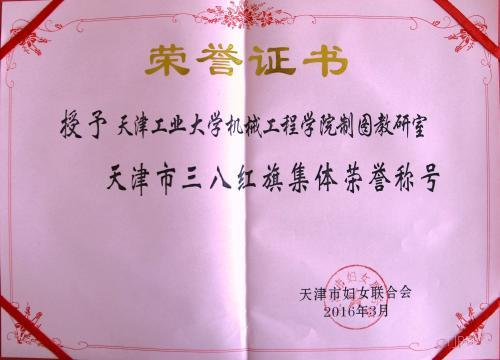 荣誉证书
授予 天津工业大学机械工程学院制图教研室
天津市三八红旗集体荣誉称号
天津市妇女联合会
2016年3月